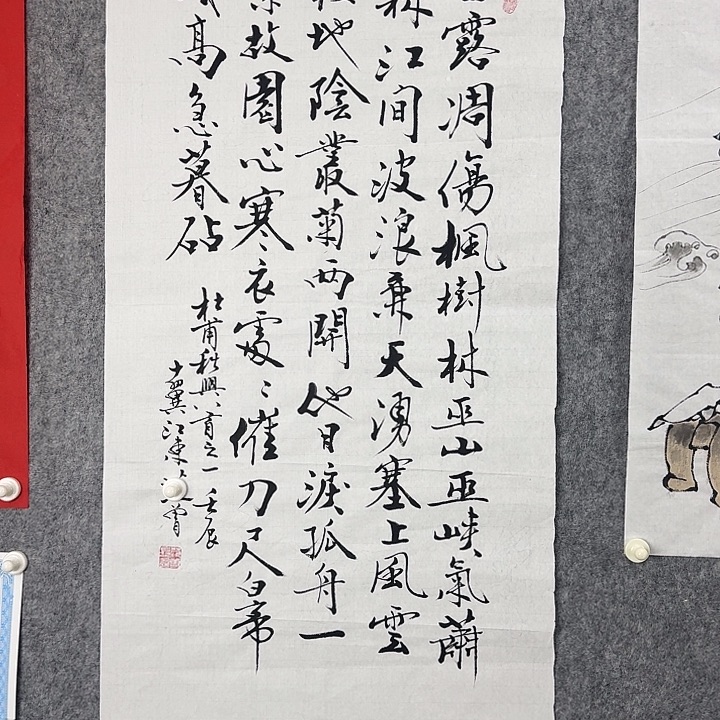 露凋傷楓樹林巫山巫峽氣蕭
森江間波浪兼天湧塞上風雲
地陰叢菊兩開他日淚孤舟一
故園心寒衣處〻催刀尺白帝
高急暮砧
杜甫秋興八首之一 壬辰
江東